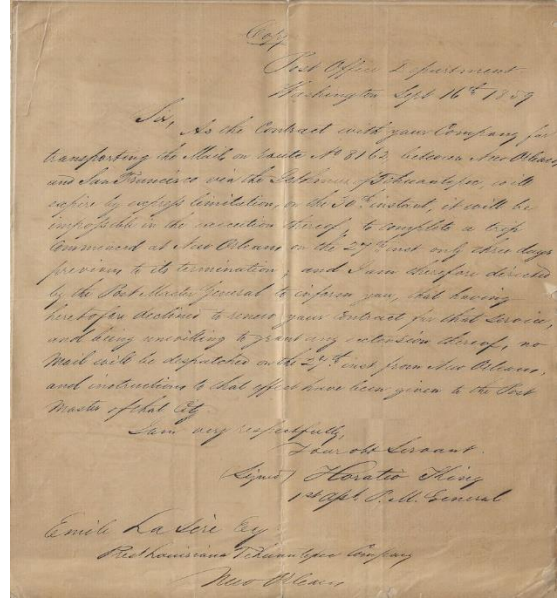 Copy
Post Office Department
Washington Sept 16th 1859
Sir,
As the Contract with your Company for
transporting the Mails on route No 8162, between New Orleans
and San Francisco via the Isthmus of Tehuantepec, will
expire by express limitation, on the 30th instant, it will be
impossible in the execution thereof, to complete a trip
Commenced at New Orleans on the 27th inst only three days
previous to its termination; and I am therefore directed
by the Post Master General to inform you, that having
heretofore declined to renew your Contract for that Service,
and being unwilling to grant any extension thereof, no
Mail will be despatched on the 27th inst from New Orleans,
and instructions to that effect have been given to the Post
Master of that City.
I am very respectfully,
Your obt Servant.
(Signed) Horatio King
1st Asst P.M. General
Emile La Sére Esq
Prest Louisiana Tehuantepec Company
New Orleans